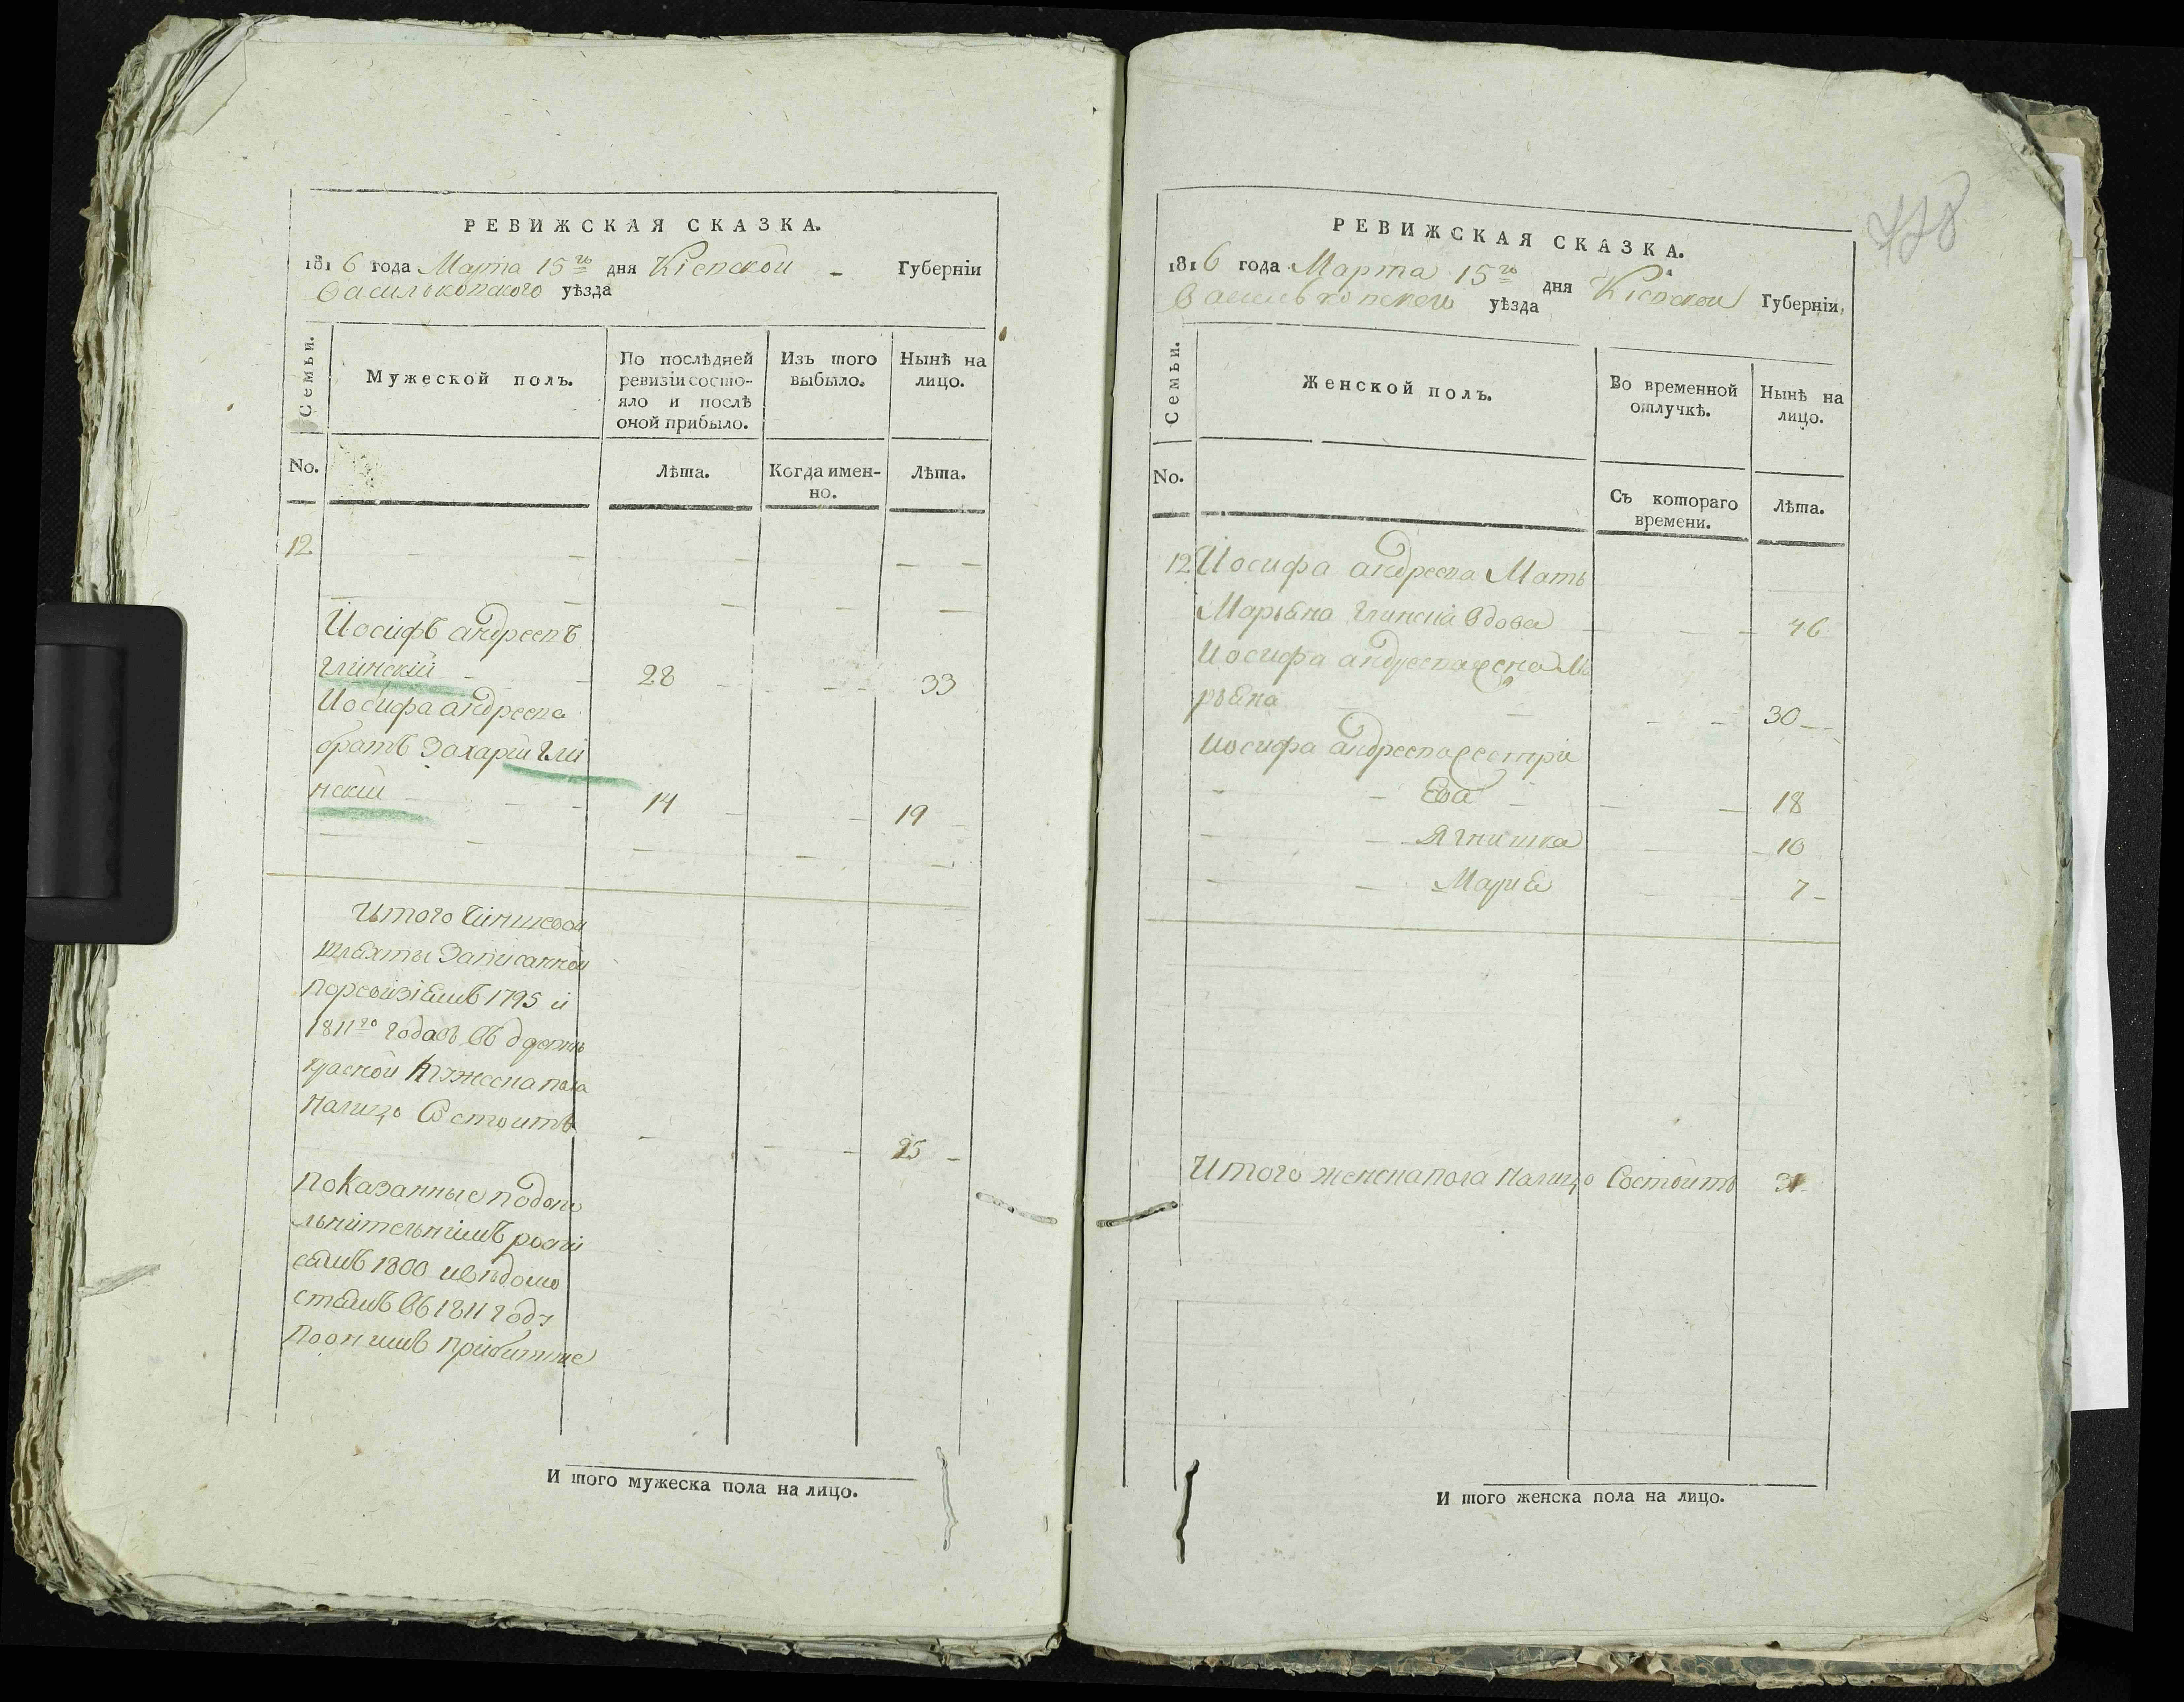 РЕВИЖСКАЯ СКАЗКА.
1816 года Марта 15го дня Кіевской Губерніи
Васильковского уѣзда
Семьи.
Мужеской полъ.
По послѣдней ревизіи состо-
яло и послѣ
оной прибыло.
Изъ того
выбыло.
Нынѣ на
лицо.
No.
Лѣта.
Когда имен-
но.
Лѣта.
12
Иосифъ андреевъ
глинский 28 33
Иосифа андреева
братъ Захарий гли
нский 14 19
Итого Чиншевой
шляхты Записанной
поревизіямъ 1795 и
1811го годовъ въ
мужеска пола
налицо Состоитъ
25
показанные подопо
лнительнимъ
1800
стямъ въ 1811 году
поонимъ прибитие
И того мужеска пола на лицо.
778
РЕВИЖСКАЯ СКАЗКА.
1816 года Марта 15го дня Кіевской Губерніи,
Васильковского уѣзда
Семьи.
Женской полъ.
Во временной
отлучкѣ.
Нынѣ на
лицо.
No.
Съ котораго
времени.
Лѣта.
12 Иосифа андреева Мать
Марьяна глинска вдова 46
Иосифа андреева жена Ма
рьяна 30
Иосифа андреева сестри
Ева 18
Ягнишка 10
Мария 7
Итого женска пола налицо Состоитъ 31
И того женска пола на лицо.